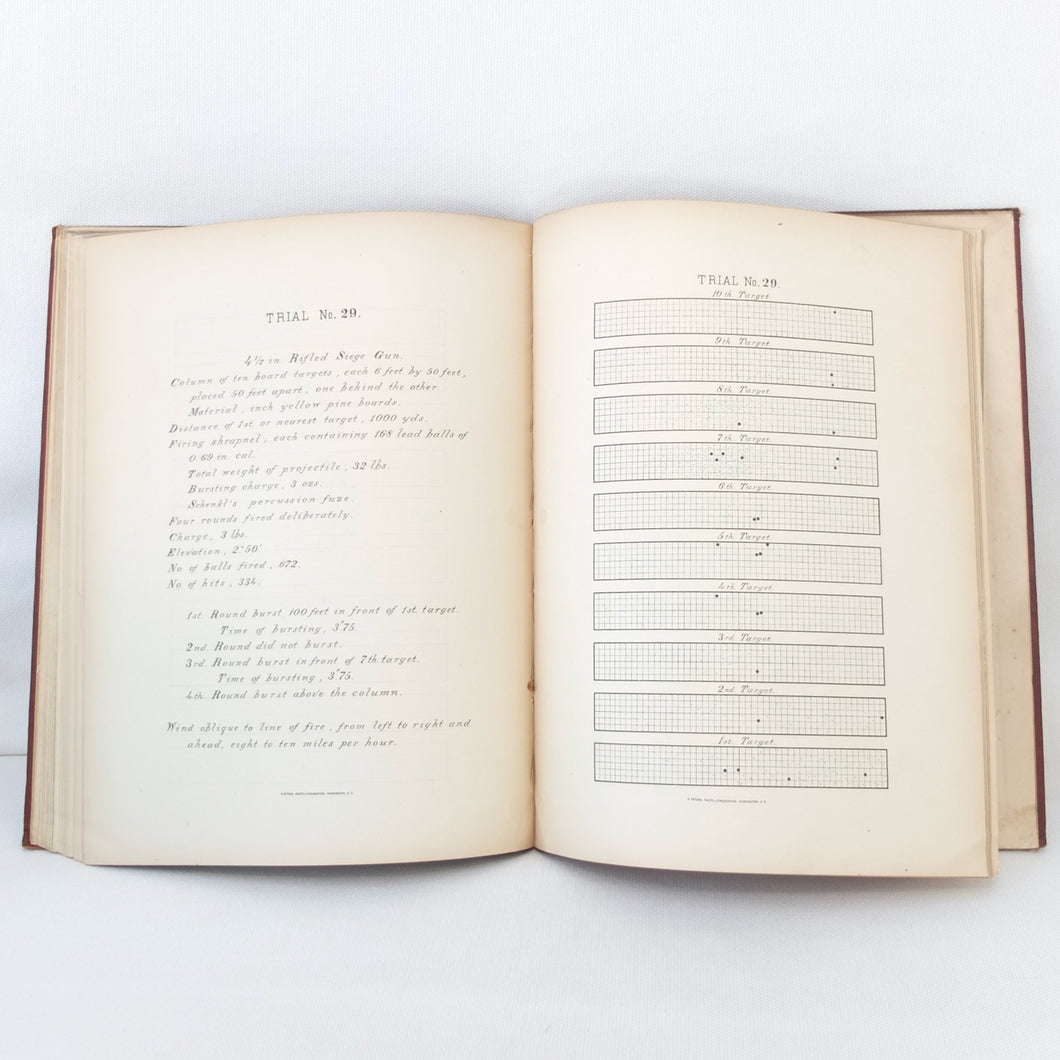 TRIAL No. 29.
4½ in. Rifled Siege Gun.
Column of ten board targets, each 6 feet by 50 feet,
placed 50 feet apart, one behind the other.
Material, inch yellow pine boards.
Distance of 1st. or nearest target, 1000 yds.
Firing shrapnel; each containing 168 lead balls of
0.69 in. cal.
Total weight of projectile, 32 lbs.
Bursting charge, 3 ozs.
Schenkl's percussion fuze.
Four rounds fired deliberately.
Charge, 3 lbs.
Elevation, 2°50'
No of balls fired, 672.
No. of hits, 334.
1st. Round burst 100 feet in front of 1st. target.
Time of bursting, 3"75.
2nd. Round did not burst.
3rd. Round burst in front of 7th. target.
Time of bursting, 3"75.
4th. Round burst above the column.
Wind oblique to line of fire, from left to right and
ahead, eight to ten miles per hour.
N. PETERS, PHOTO-LITHOGRAPHER, WASHINGTON, D. C.
TRIAL No. 29.
10th Target
9th. Target
8th. Target
7th. Target
6th. Target
5th. Target
4th. Target
3rd. Target
2nd. Target
1st. Target.
N. PETERS, PHOTO-LITHOGRAPHER, WASHINGTON, D. C.